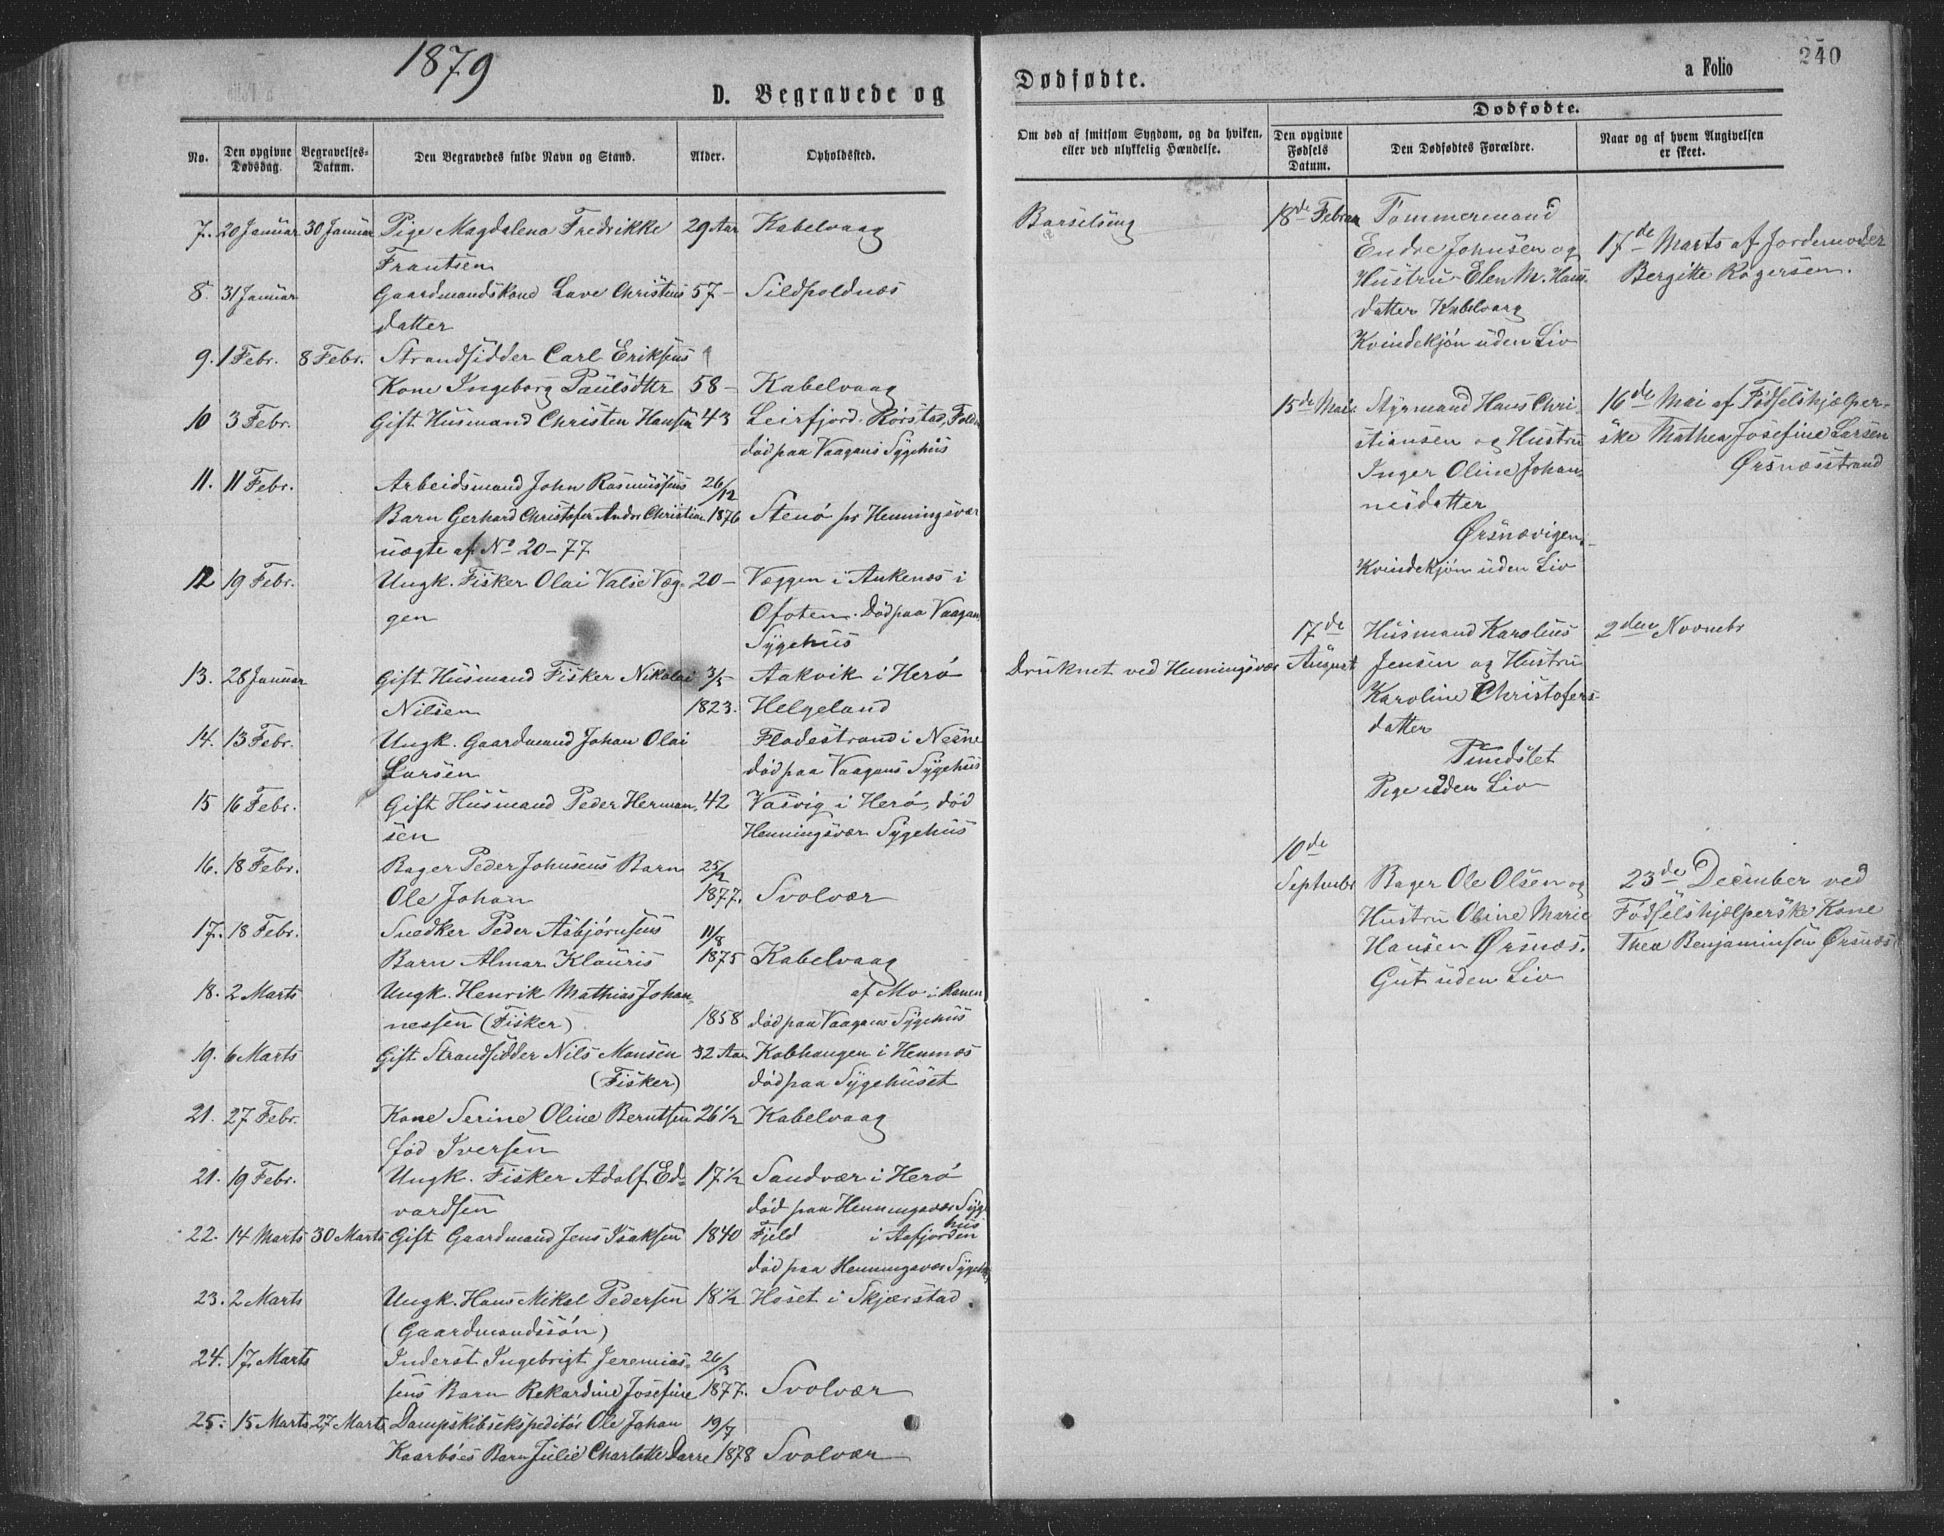 1879
D. Begravede og
No.
Den opgivne Dødsdag.
Begravelses-Datum.
Den Begravedes fulde Navn og Stand.
Alder.
Opholdssted.
7. 20 Januar 30 Januar Pige Magdalena Fredrikke 29 Aar Kabelvaag
Frantsen
8. 31 Januar Gaardmandskone Lave Christens 57 –
datter
9. 1 Febr. 8 Febr. Strandsidder Carl Eriksens
Kone Ingeborg Paulsdtr 58 – Kabelvaag
10 3 Febr. Gift Husmand Christen Hansen 43 Leirfjord. Rørstad, Folden
død paa Vaagans Sygehus
11. 11 Febr. Arbeidsmand John Rasmussens 26/12
Barn Gerhard Christofer Andor Christian 1876 Stenø pr Henningsvær
uægte af No 20-77
12 19 Febr. Ungk. Fisker Olai Valse Væg- 20 – Væggen i Ankenes i
gen Ofoten. Død paa Vaagans
Sygehus
13. 28 Januar Gift Husmand Fisker Nikolai 3/5 Aakvik i Herø
Nilsen 1823. Helgeland
14. 13 Febr. Ungk. Gaardmand Johan Olai Flodestrand i Nesne
Larsen død paa Vaagans Sygehus
15 16 Febr. Gift Husmand Peder Herman- 42 Vasvig i Herø, død
sen Henningsvær Sygehus
16. 18 Febr. Bager Peder Johnsens Barn 25/12
Ole Johan 1877. Svolvær
17. 18 Febr. Snedker Peder Asbjørnsens 11/8
Barn Almar Klauris 1875 Kabelvaag
18. 2 Marts Ungk. Henrik Mathias Johan- af Mo i Ranen
nessen (Fisker) 1858 død paa Vaagans Sygehus
19. 6 Marts Gift Strandsidder Nils Monsen 32 Aar Kobhaugen i Hemnæs
(Fisker) død paa Sygehuset
21. 27 Febr. Kone Serine Oline Berntsen 26 1/2 Kabelvaag
fød Iversen
21. 19 Febr. Ungk. Fisker Adolf Ed- 17 1/2 Sandvær i Herø
vardsen død paa Henningsvær Syge
hus
22. 14 Marts 30 Marts Gift Gaardmand Jens Isaksen 1840 Fjeld i Aafjorden
død paa Henningsvær Sygehus
23. 2 Marts Ungk. Hans Mikal Pedersen 18 1/2 Høset i Skjærstad.
(Gaardmandssøn)
24. 17 Marts Inderst Ingebrigt Jeremias- 26/3
sens Barn Rekardine Josefine 1877. Svolvær
25. 15 Marts 27 Marts Dampskibsekspeditør Ole Johan 19/7
Kaarbøes Barn Julie Charlotte Darre 1878 Svolvær
240
a Folio
Dødfødte.
Dødfødte.
Om død af smitsom Sygdom, og da hvilken,
eller ved ulykkelig Hændelse.
Den opgivne Fødsels Datum.
Den Dødfødtes Forældre.
Naar og af hvem Angivelsen er skeet.
Barselseng
Druknet ved Henningsvær
18de Februar Tømmermand
Endre Johnsen og
Hustru Elen M. Hans-
datter Kabelvaag
Kvindekjøn uden Liv
17de Marts af Jordemoder
Bergitte Rogersen.
15de Mai Styrmand Hans Chri-
stiansen og Hustru
Inger Oline Johan-
nesdatter
Ørsnævigen
Kvindekjøn uden Liv
16de Mai af Fødselshjælper-
ske Mathea Josefine Larsen
Ørsnæsstrand
17de August Husmand Karolius
Jensen og Hustru
Karoline Christofers-
datter
Pundslet
Pige uden Liv
2den Novnebr
10de Septmbr Bager Ole Olsen og
Hustru Oline Marie
Hansen Ørsnæs.
Gut uden Liv
23de December ved
Fødselshjælperske Kone
Thea Benjaminsen Ørsnæs